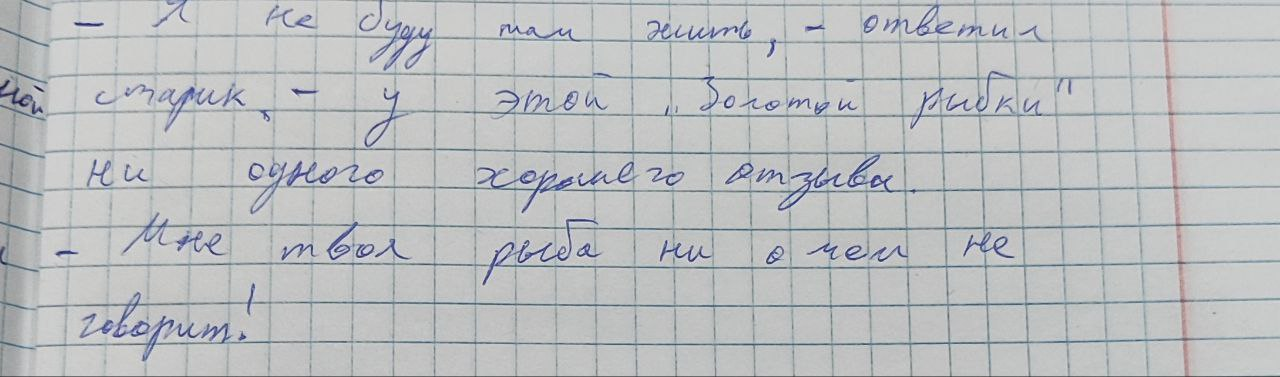 - Я не буду там жить, - ответил
старик, - у этой „Золотой рыбки"
ни одного хорошего отзыва.
- Мне твоя рыба ни о чем не
говорит!